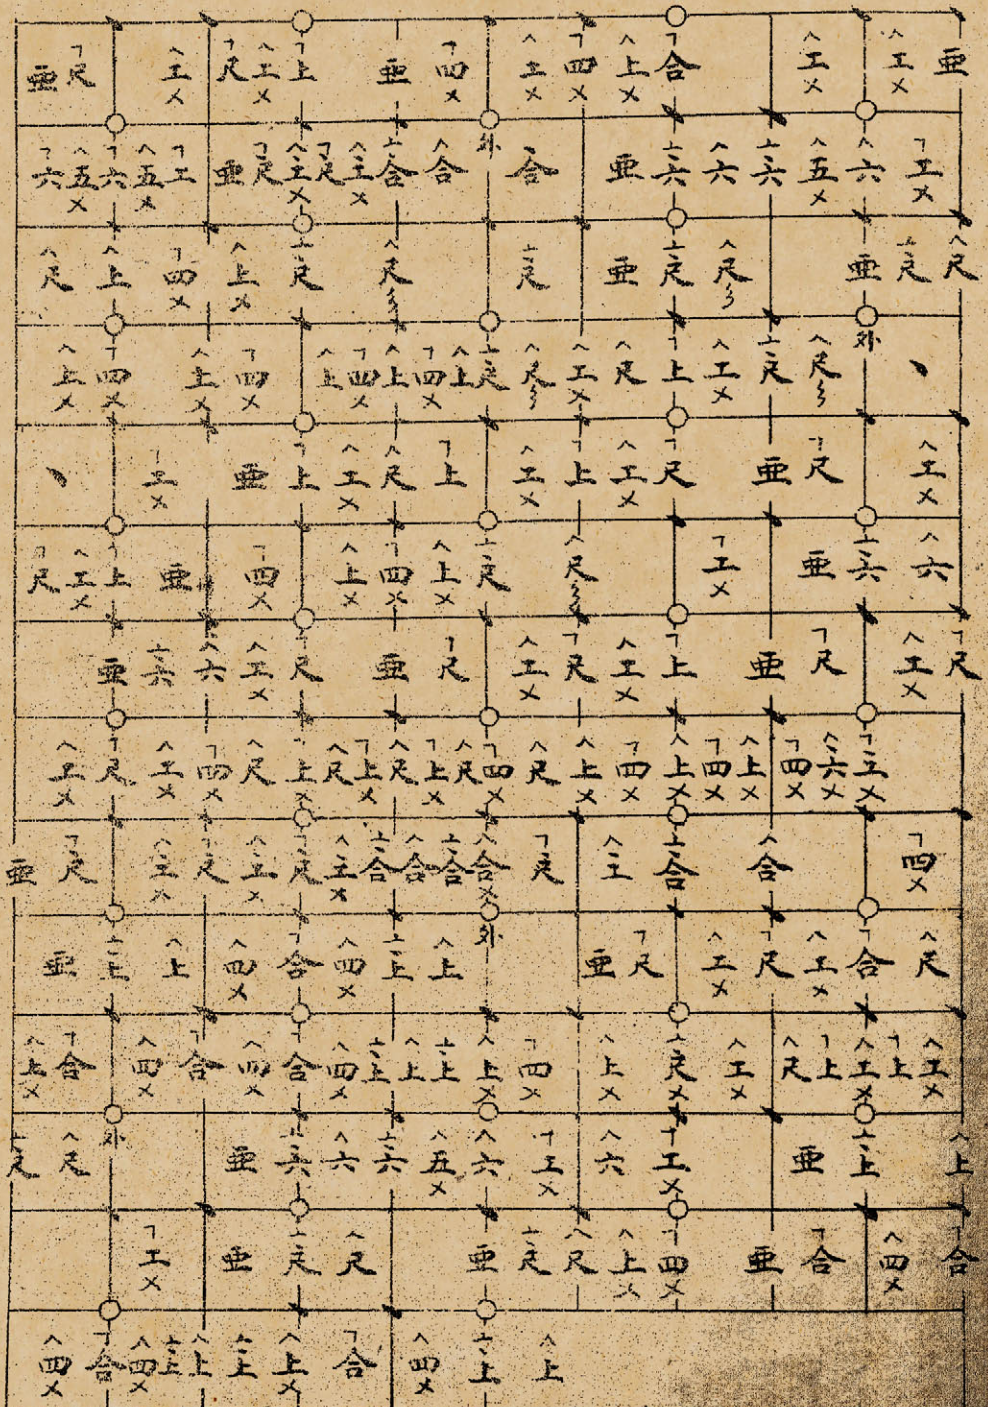 亜 尺 工 尺 工 上 亜 四 工 四 上 合 工 工 亜
六 五 六 五 工 亜 尺 工 尺 工 合 合 外 合 亜 六 六 六 五 六 工
尺 上 四 上 尺 尺 尺 亜 尺 尺 亜 尺 尺
上 四 上 四 上 四 上 四 上 尺 尺 工 尺 上 工 尺 尺 外 、
、 工 亜 上 工 尺 上 工 上 工 尺 亜 尺 工
尺 工 上 亜 四 上 四 上 尺 尺 工 亜 六 六
亜 六 六 工 尺 亜 尺 工 尺 工 上 亜 尺 工 尺
工 尺 工 四 尺 上 尺 上 尺 上 尺 四 尺 上 四 上 四 上 四 六 工
亜 尺 工 尺 工 尺 工 合 合 合 合 尺 工 合 合 四
亜 上 上 四 合 四 上 上 外 亜 尺 工 尺 工 合 尺
上 合 四 合 四 合 四 上 上 上 上 四 上 尺 工 尺 上 工 上 工
尺 尺 外 亜 六 六 六 五 六 工 六 工 亜 上 上
工 亜 尺 尺 亜 尺 尺 上 四 亜 合 四 合
四 合 四 上 上 上 上 合 四 上 上